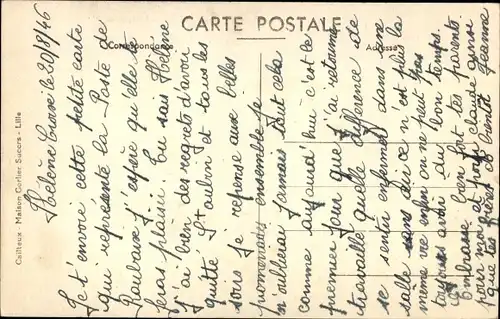 CARTE POSTALE
Correspondance
Adresse
Cailteux - Maison Carlier Succrs - Lille
Hélème Corse le 20/8/46
Je t'envoie cette petite carte
qui représente la Poste de
Roubaix J'espère qu'elle te
feras plaisir. Tu sais Hélène
J'ai bien des regrets d'avoir
quitté St aubin et tous les
soirs Je repense aux belles
promenades ensemble Je
n'oublierai Jamais tout cela
comme aujourd'hui c'est le
premier Jour que J'ai retourné
travaillé quelle différence de
se sentir enfermer dans une
salle sans air ce n'est plus la
même vie enfin on ne peut pas
toujours avoir du bon temps.
Embrasse bien tes parents
pour moi et pour Claude ainsi
q tes frères a bientôt Jeanne